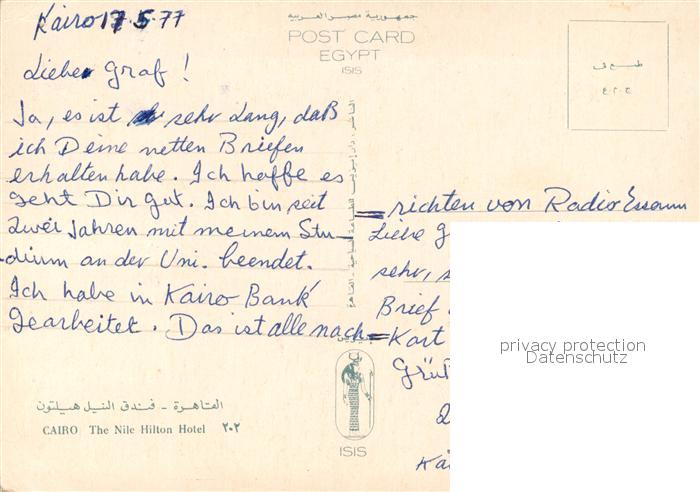 Kairo 17.5.77
Lieber Graf !
Ja, es ist sehr Lang, daß
ich Deine netten Briefen
erhalten habe. Ich hoffe es
geht Dir gut. Ich bin seit
zwei Jahren mit meinem Stu-
dium an der Uni. beendet.
Ich habe in Kairo Bank
gearbeitet. Das ist alle nach=
القاهرة - فندق النيل هيلتون
CAIRO The Nile Hilton Hotel ٢٠٢
جمهورية مصر العربية
POST CARD
EGYPT
ISIS
ISIS
=richten von Radio Essam
Liebe G
sehr, s
Brief
=Kart
Grüß
Kai
privacy protection
Datenschutz